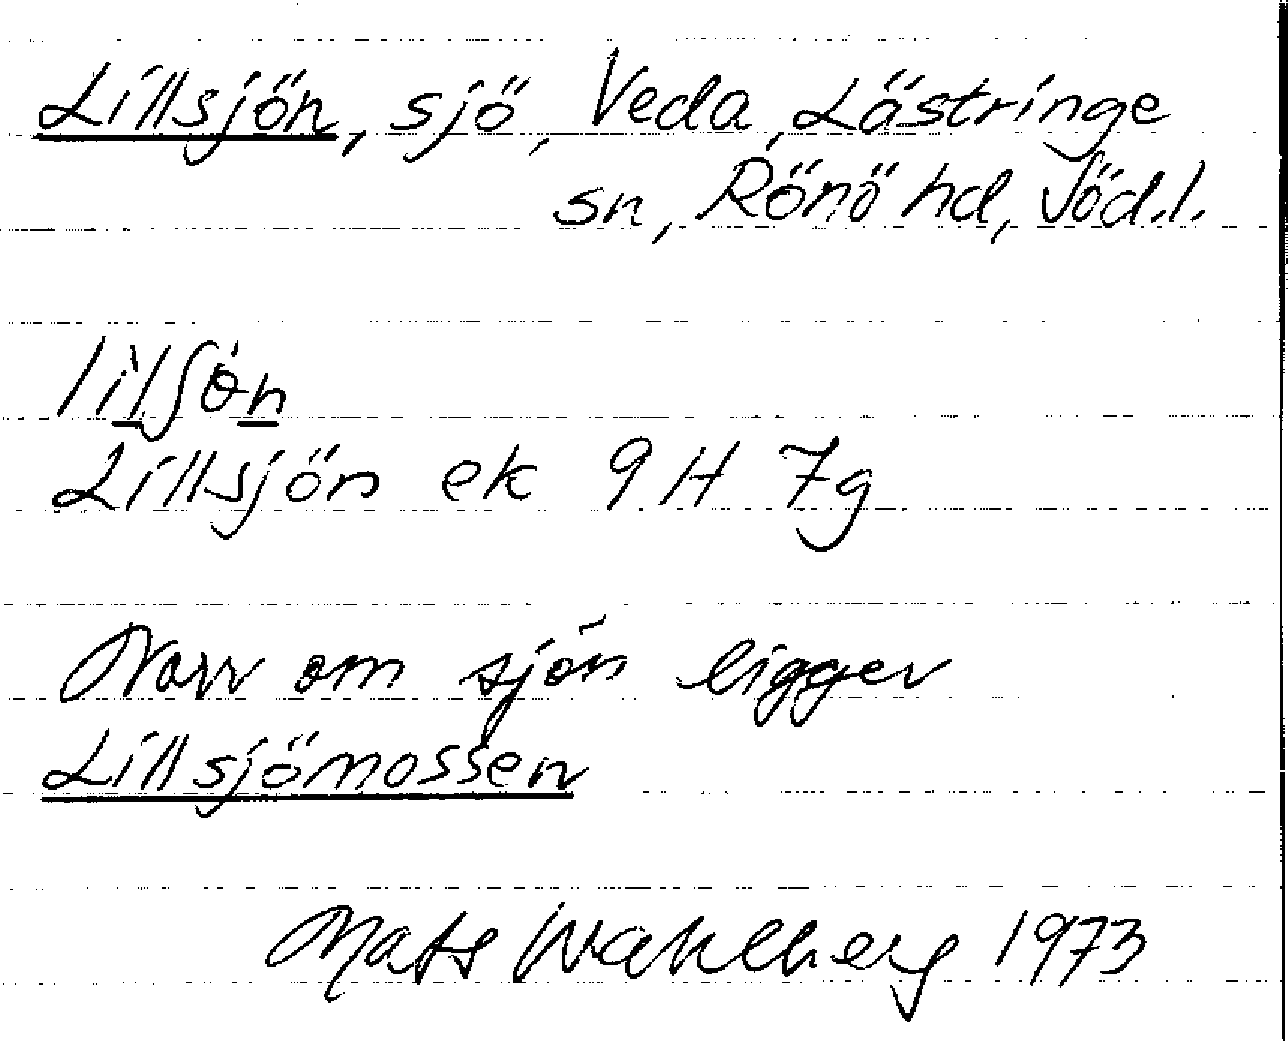 Lillsjön, sjö, Veda, Lästringe
sn, Rönö hd, Söd.l.
lìlʃö̀n
Lillsjön ek 9H 7g
Norr om sjön ligger
Lillsjömossen
Mats Wahlberg 1973